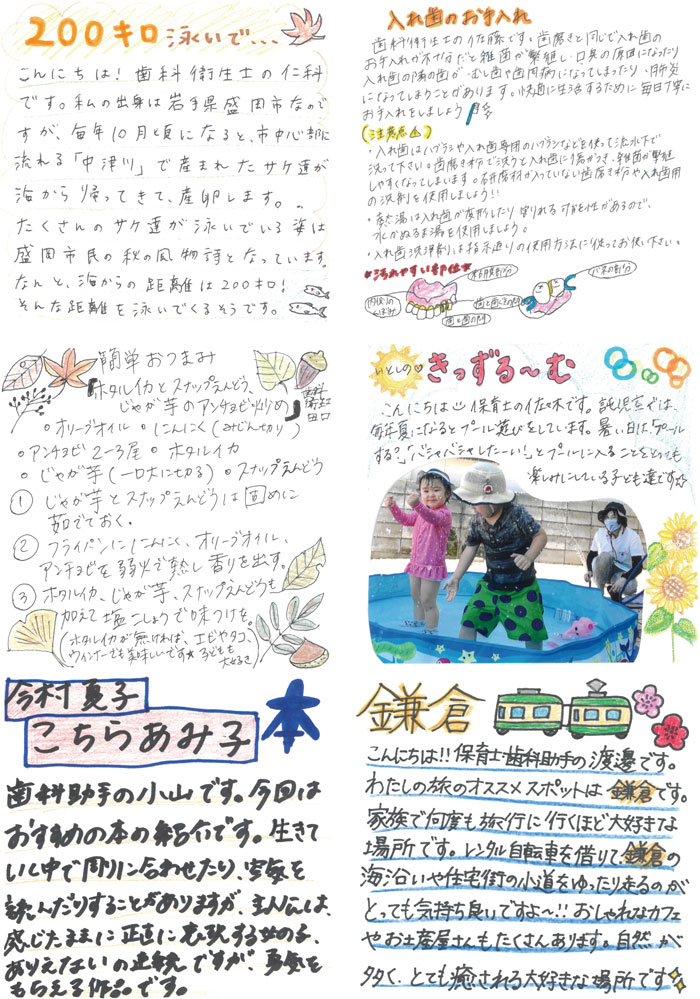 200キロ泳いで…
こんにちは！歯科衛生士の仁科
です。私の出身は岩手県盛岡市なので
すが、毎年10月頃になると、市中心部に
流れる「中津川」で産まれたサケ達が
海から帰ってきて、産卵します。
たくさんのサケ達が泳いでいる姿は
盛岡市民の秋の風物詩となっています。
なんと、海からの距離は200キロ！
そんな距離を泳いでくるそうです。
入れ歯のお手入れ
歯科衛生士の佐藤です。歯磨きと同じで入れ歯の
お手入れが不十分だと雑菌が繁殖し口臭の原因になったり
入れ歯の隣の歯がむし歯や歯周病になってしまったり、肺炎
になってしまうことがあります。快適に生活するために毎日丁寧に
お手入れをしましょう
注意点
・入れ歯はハブラシや入れ歯専用のハブラシなどを使って流水下で
洗って下さい。歯磨き粉で洗うと入れ歯に傷がつき、雑菌が繁殖
しやすくなってしまいます。研磨材が入っていない歯磨き粉や入れ歯用
の洗剤を使用しましょう!!
・熱湯は入れ歯が変形したり割れる可能性があるので、
水かぬるま湯を使用しましょう。
・入れ歯洗浄剤は指示通りの使用方法に従ってお使い下さい。
汚れやすい部位
粘膜部分
バネの部分
内側の
くぼみ
歯と歯ぐきの間
歯と歯の間
簡単おつまみ
「ホタルイカとスナップえんどう、
じゃが芋のアンチョビ炒め」
歯科
衛生士
田口
・オリーブオイル ・にんにく(みじん切り)
・アンチョビ 2〜3尾 ・ホタルイカ
・じゃが芋(一口大に切る) ・スナップえんどう
① じゃが芋とスナップえんどうは固めに
茹でておく。
② フライパンににんにく、オリーブオイル、
アンチョビを弱火で熱し香りを出す。
③ ホタルイカ、じゃが芋、スナップえんどうも
加えて塩こしょうで味つけを。
(ホタルイカが無ければ、エビやタコ、
ウインナーでも美味しいです☆子どもも
大好き)
いとしの♡
きっずる〜む
こんにちは 保育士の佐々木です。託児室では、
毎年夏になるとプール遊びをしています。暑い日は、「プール
する?」「バシャバシャしたーい!」とプールに入ることをとっても
楽しみにしている子ども達です☆
今村夏子
こちらあみ子
本
歯科助手の小山です。今回は
おすすめの本の紹介です。生きて
いく中で周りに合わせたり、空気を
読んだりすることがありますが、主人公は、
感じたままに正直に表現する女の子、
ありえないの連続ですが、勇気を
もらえる作品です。
鎌倉
こんにちは!!保育士・歯科助手の渡邊です。
わたしの旅のオススメスポットは鎌倉です。
家族で何度も旅行に行くほど大好きな
場所です。レンタル自転車を借りて、鎌倉の
海沿いや住宅街の小道をゆったり走るのが
とっても気持ち良いですよ〜!!おしゃれなカフェ
やお土産屋さんもたくさんあります。自然が
多く、とても癒される大好きな場所です